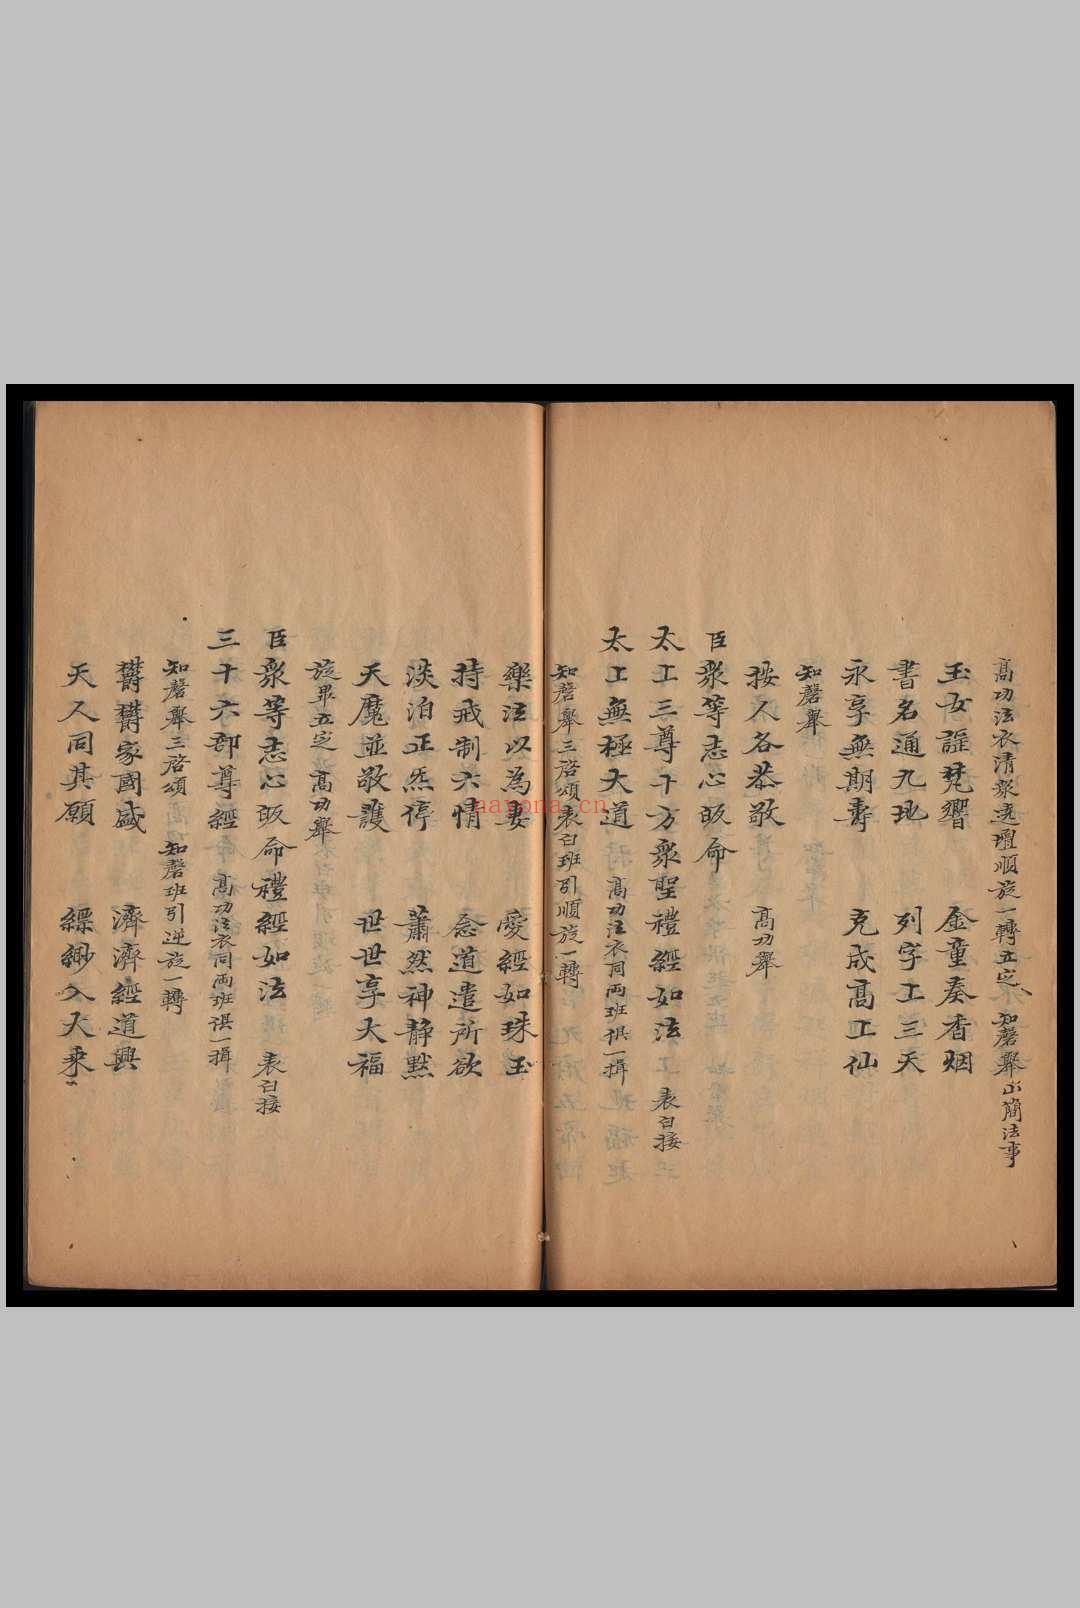 高功法衣清衆遶壇順旋一轉立定 知磬舉出簡法事
玉女謡梵響 金童奏香烟
書名通九地 列字上三天
永享無期壽 克成高上仙
知磬舉
按人各恭敬 高功舉
臣衆等志心皈命
太上三尊十方衆聖禮經如法 表白接
太上無極大道 高功法衣同両班俱一揖
知磬舉三啓頌表白班引順旋一轉
樂法以為妻 愛經如珠玉
持戒制六情 念道遣所欲
淡泊正炁停 蕭然神静默
天魔並敬護 世世享大福
旋畢立定 高功舉
臣衆等志心皈命禮經如法 表白接
三十六部尊經 高功法衣同両班俱一揖
知磬舉三啓頌 知磬班引逆旋一轉
欝欝家國盛 濟濟經道興
天人同其願 縹緲入大乘
nayona.cn